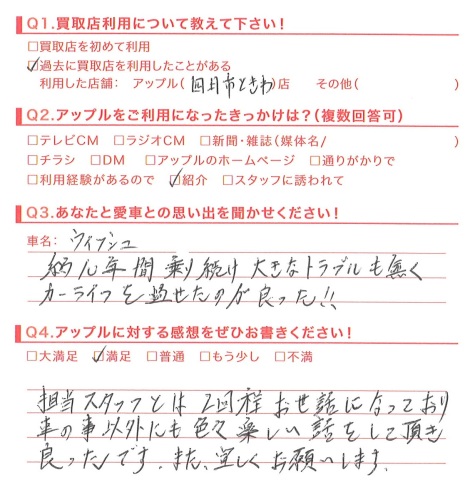 Q1.買取店利用について教えて下さい!
□買取店を初めて利用
☑過去に買取店を利用したことがある
利用した店舗: アップル(四日市ときわ)店 その他( )
Q2.アップルをご利用になったきっかけは?(複数回答可)
□テレビCM □ラジオCM □新聞・雑誌(媒体名/ )
□チラシ □DM □アップルのホームページ □通りがかりで
□利用経験があるので ☑紹介 □スタッフに誘われて
Q3.あなたと愛車との思い出を聞かせください!
車名: ウイングロ
約ん年間乗り続け大きなトラブルも無く
カーライフを過せたのが良った!!
Q4.アップルに対する感想をぜひお書きください!
□大満足 ☑満足 □普通 □もう少し □不満
担当スタッフとは2回程お世話になっており
車の事以外にも色々楽しい話をして頂き
良ったです。また、宜しくお願いします。